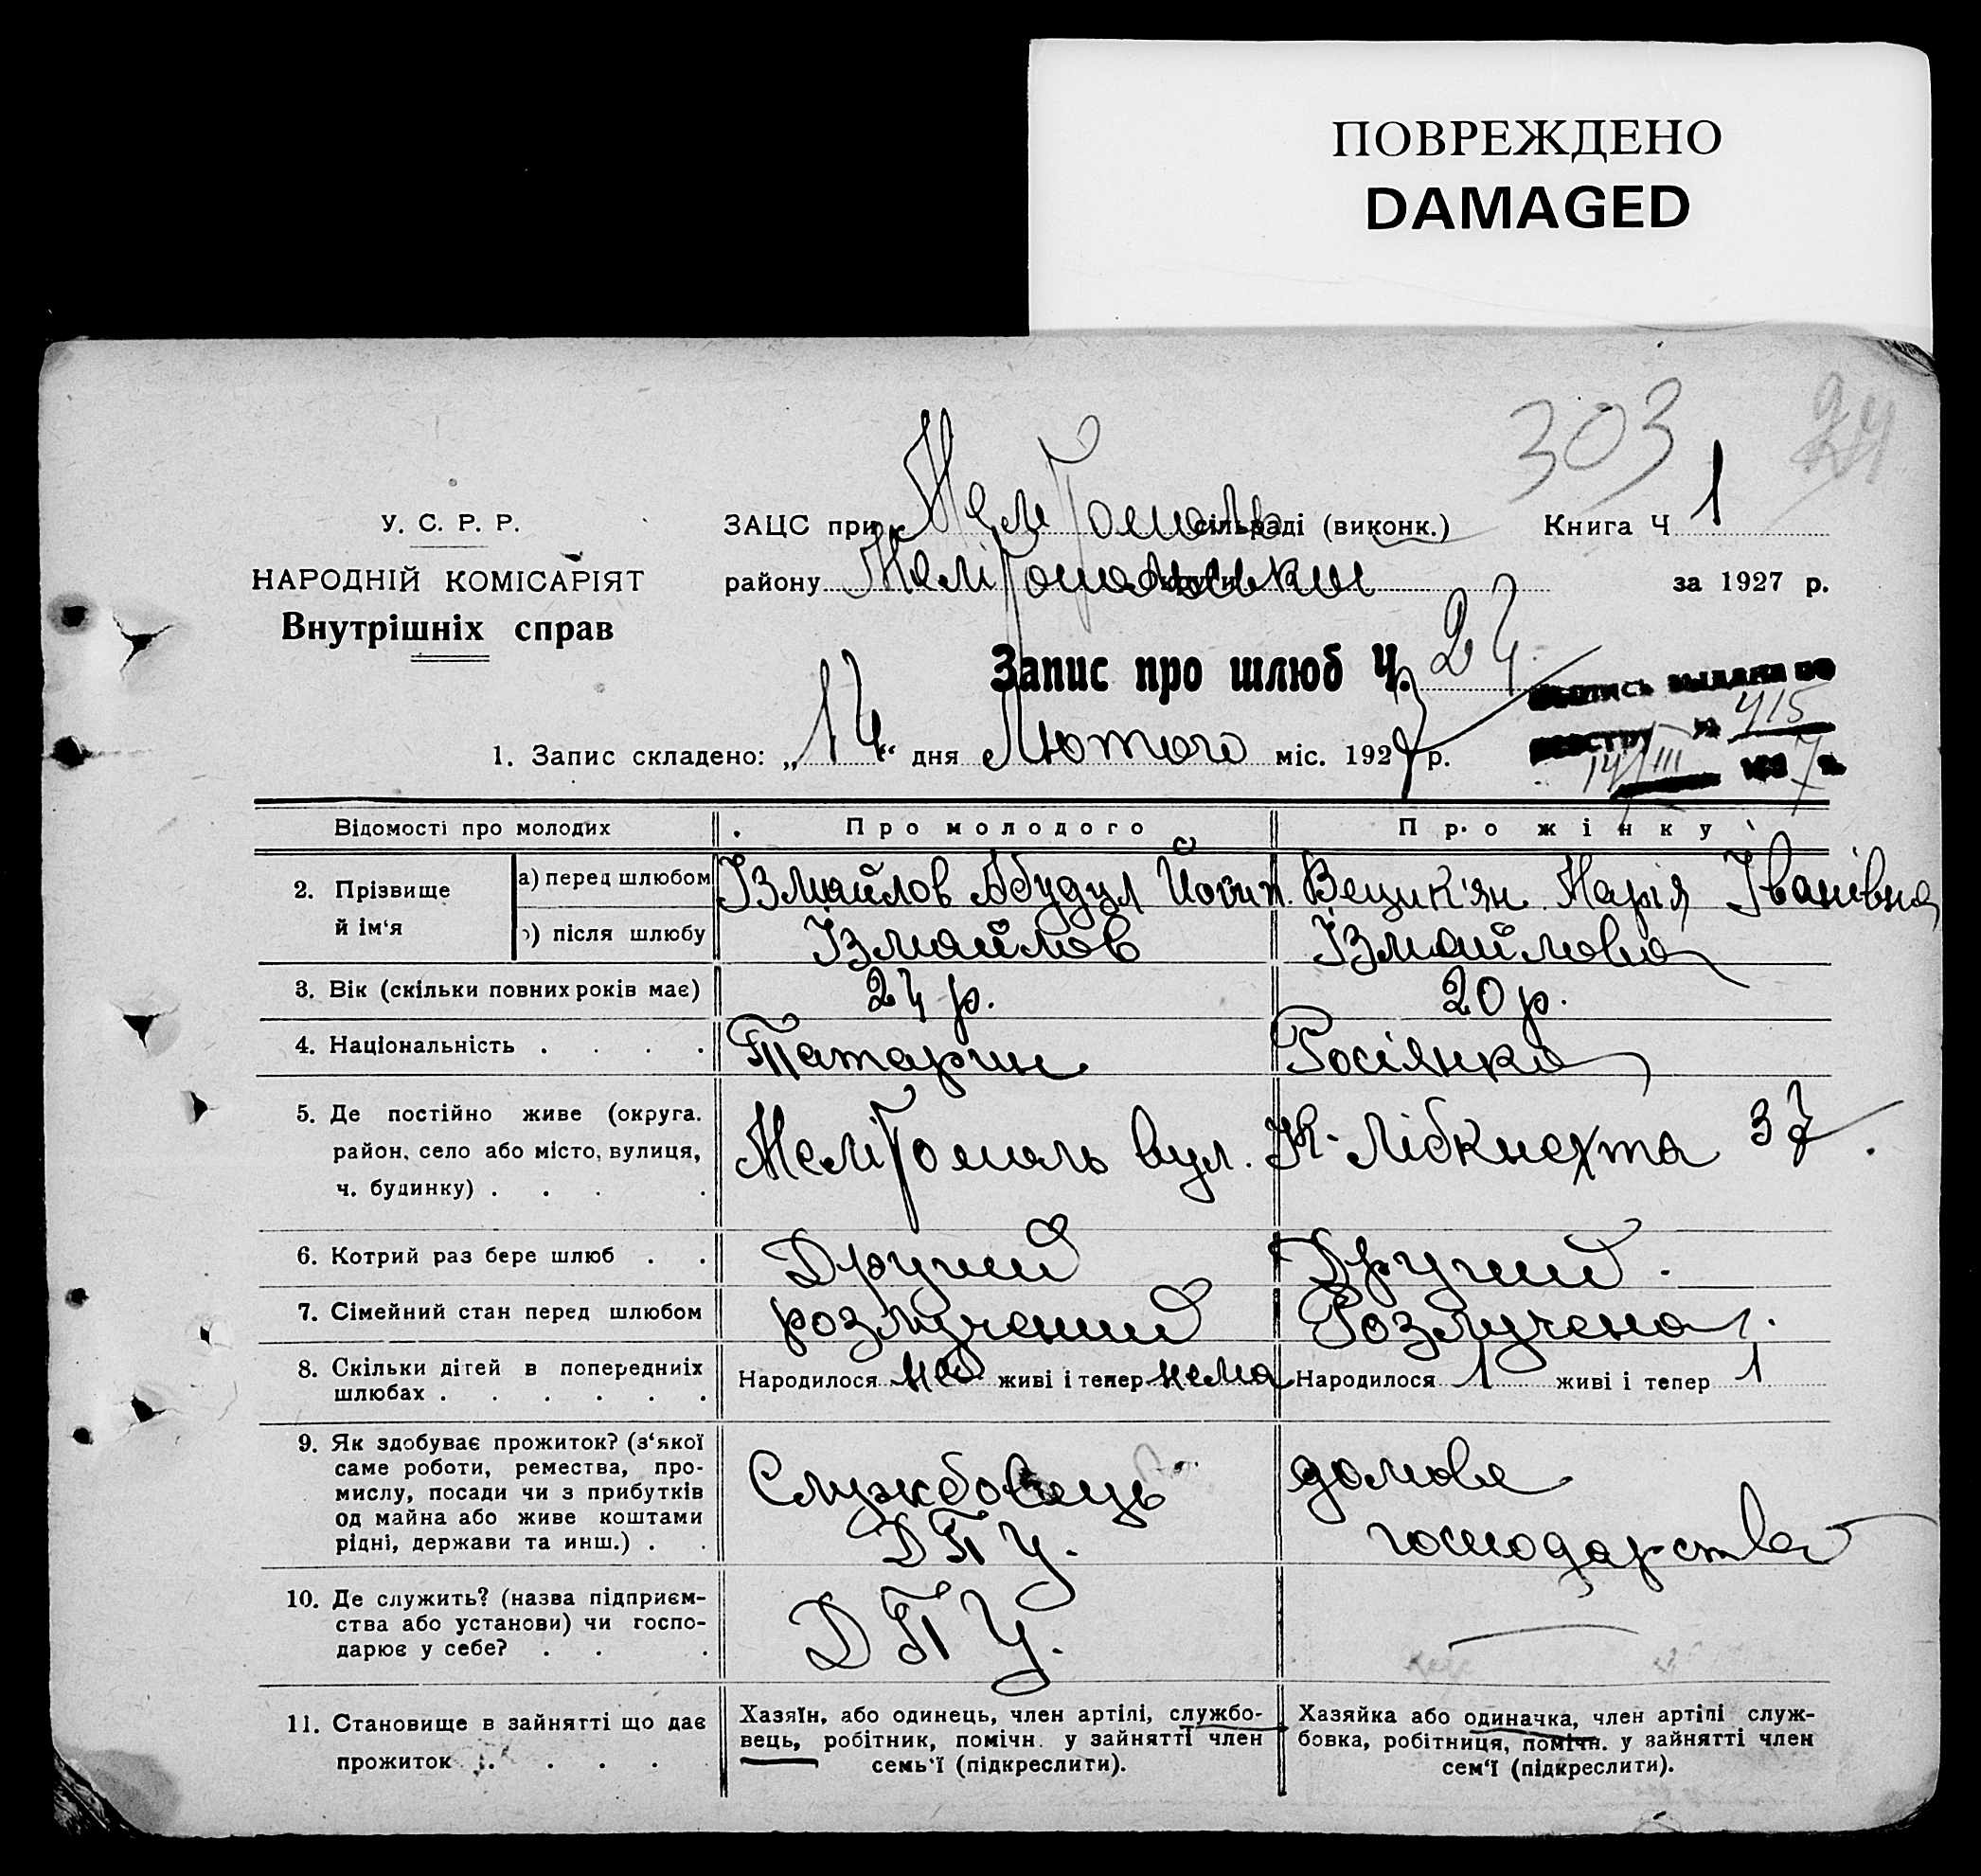 ПОВРЕЖДЕНО
DAMAGED
303
У. С. Р. Р.
НАРОДНІЙ КОМІСАРІЯТ
Внутрішніх справ
ЗАЦС при сільраді (виконк.) Книга Ч 1
району за 1927 р.
Запис про шлюб Ч. 24
1. Запис складено: „14“ дня Лютого міс. 1927 р.
выдана по
415
14/III 1927
Відомості про молодих Про молодого Про жінку
2. Прізвище й ім‘я а) перед шлюбом Ізмайлов Абудул Вецик'ян Марія Іванівна
б) після шлюбу Ізмайлов Ізмайлова
3. Вік (скільки повних років має) 24 р. 20 р.
4. Національність . . . . Татарин Росіянка
5. Де постійно живе (округа.
район, село або місто, вулиця, Мелітополь вул. К. Лібкнехта 37.
ч. будинку) . . . .
6. Котрий раз бере шлюб . . Другий Другий.
7. Сімейний стан перед шлюбом розлучений Розлучена.
8. Скільки дітей в попередниіх Народилося живі і тепер нема Народилося 1 живі і тепер 1
шлюбах . . . . . .
9. Як здобуває прожиток? (з‘якої
саме роботи, ремества, про- Службовець домове
мислу, посади чи з прибутків
од майна або живе коштами ДПУ. господарство
рідні, держави та инш.) . .
10. Де служить? (назва підприєм-
ства або установи) чи госпо- ДПУ.
дарює у себе? . . .
11. Становище в зайнятті що дає
прожиток . . . . .
Хазяїн, або одинець, член артілі, службо-
вець, робітник, помічн. у зайнятті член
семь‘ї (підкреслити).
Хазяйка або одиначка, член артілі служ-
бовка, робітниця, помічн. у зайнятті член
сем‘ї (підкреслити).